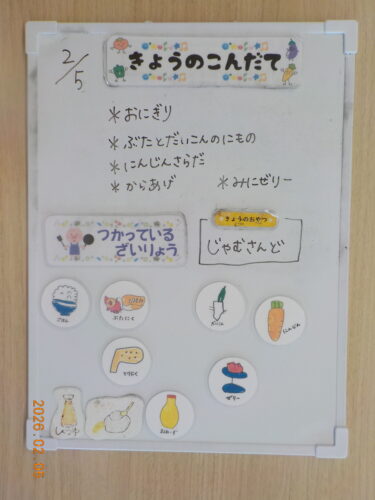 2/5
きょうのこんだて
*おにぎり
*ぶたとだいこんのにもの
*にんじんさらだ
*からあげ *みにぜりー
つかっている
ざいりょう
きょうのおやつ
じゃむさんど
ごはん
ぶたにく
だいこん
にんじん
とりにく
ゼリー
しょうゆ